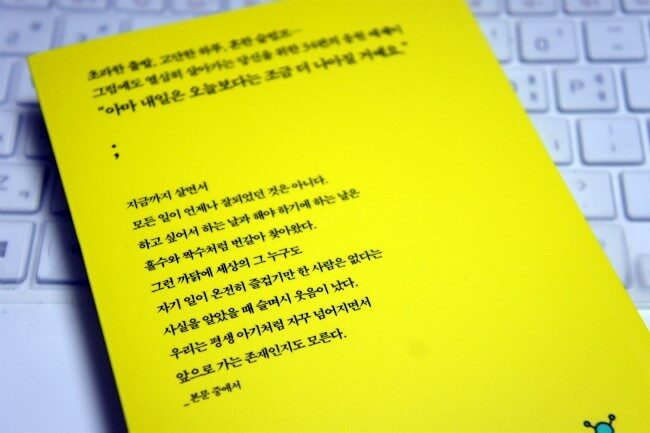 초라한 출발, 고단한 하루, 혼란 슬럼프…
그럼에도 열심히 살아가는 당신을 위한 34편의 응원 에세이
“아마 내일은 오늘보다는 조금 더 나아질 거예요.”
;
지금까지 살면서
모든 일이 언제나 잘되었던 것은 아니다.
하고 싶어서 하는 날과 해야 하기에 하는 날은
홀수와 짝수처럼 번갈아 찾아왔다.
그런 까닭에 세상의 그 누구도
자기 일이 온전히 즐겁기만 한 사람은 없다는
사실을 알았을 때 슬며시 웃음이 났다.
우리는 평생 아기처럼 자꾸 넘어지면서
앞으로 가는 존재인지도 모른다.
_본문 중에서